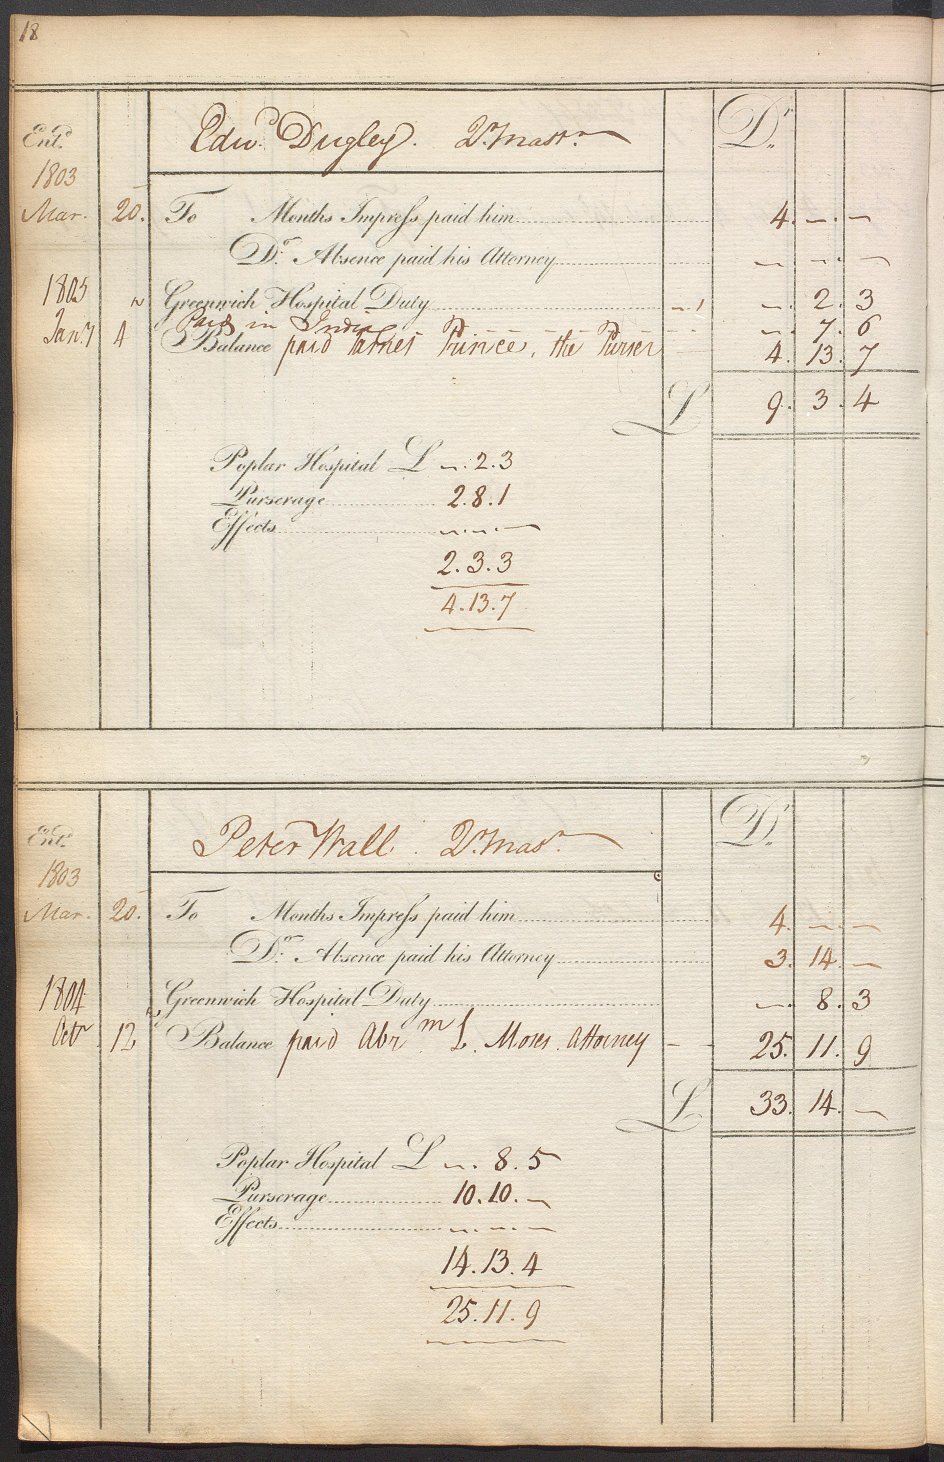 18
Ent.d
Edw.d Dugley. Qr. Mastr. Dr.
1803
Mar. 20. To Months Impress paid him 4. — . —
Dr. Absence paid his Attorney — . — . —
1805 Greenwich Hospital Duty — . 1 — . 2 . 3
Paid in India — . 7 . 6
Jany 4 Balance paid James Prince, the Purser 4. 13 . 7
L 9. 3 . 4
Poplar Hospital L — . 2 . 3
Purserage 2 . 8 . 1
Effects — . — . —
2 . 3 . 3
4 . 13 . 7
Ent.d
Peter Wall Qr. Mast. Dr.
1803
Mar. 20. To Months Impress paid him 4. — . —
Dr. Absence paid his Attorney 3. 14 . —
1804 Greenwich Hospital Duty — . 8 . 3
Octr 12 Balance paid Abrm L. Moses Attorney 25. 11 . 9
L 33. 14 . —
Poplar Hospital L — . 8 . 5
Purserage 10 . 10 . —
Effects — . — . —
14 . 13 . 4
25 . 11 . 9